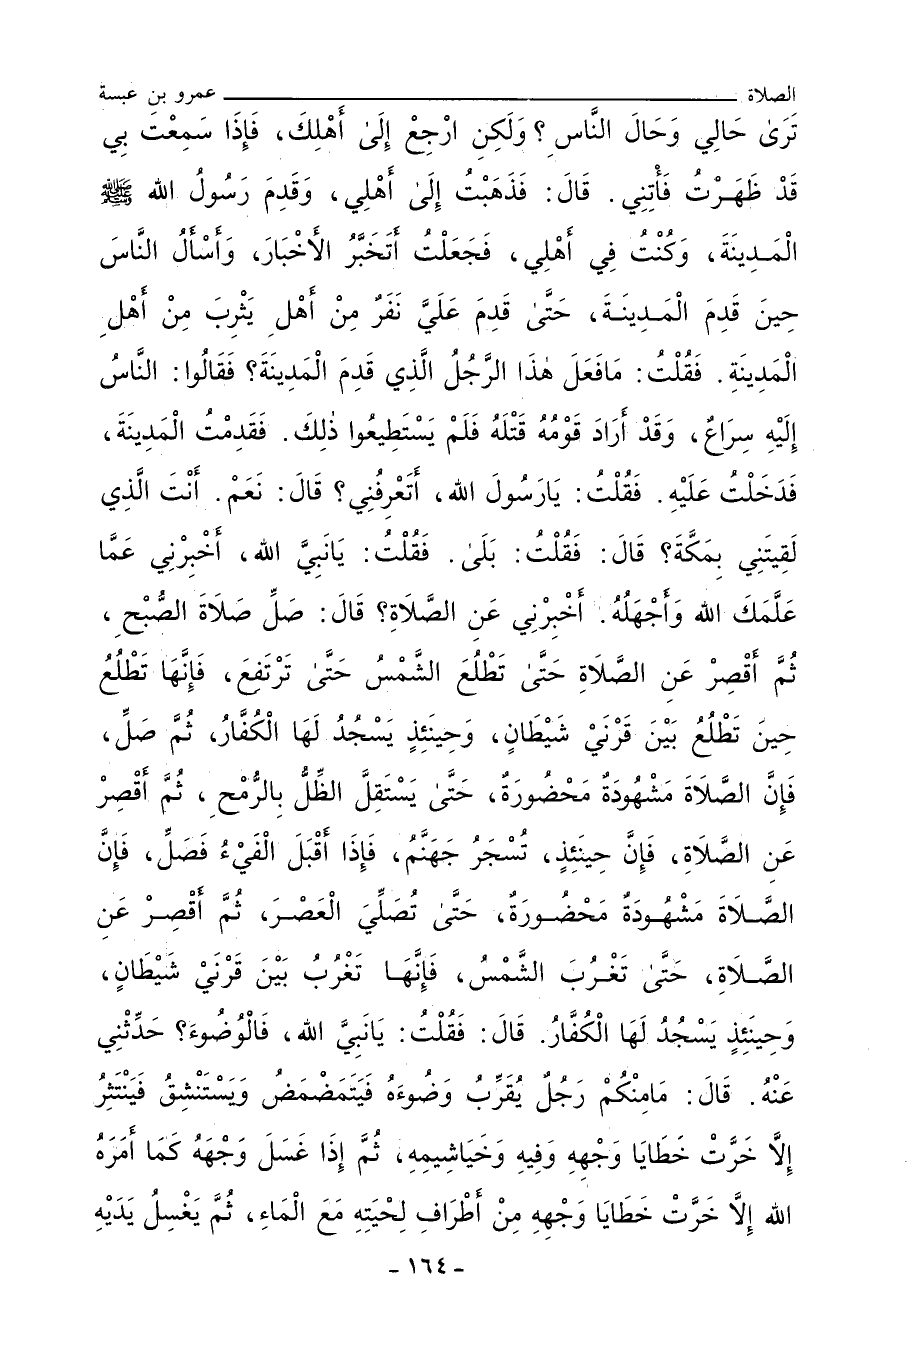 الصلاة ــــــــــــــــــــ عمرو بن عبسة
تَرَىٰ حَالِي وَحَالَ النَّاسِ؟ وَلَكِنِ ارْجِعْ إِلَىٰ أَهْلِكَ، فَإِذَا سَمِعْتَ بِي
قَدْ ظَهَرْتُ فَأْتِنِي. قَالَ: فَذَهَبْتُ إِلَىٰ أَهْلِي، وَقَدِمَ رَسُولُ الله ﷺ
الْمَدِينَةَ، وَكُنْتُ فِي أَهْلِي، فَجَعَلْتُ أَتَخَبَّرُ الأَخْبَارَ، وَأَسْأَلُ النَّاسَ
حِينَ قَدِمَ الْمَدِينَةَ، حَتَّىٰ قَدِمَ عَلَيَّ نَفَرٌ مِنْ أَهْلِ يَثْرِبَ مِنْ أَهْلِ
الْمَدِينَةِ. فَقُلْتُ: مَافَعَلَ هٰذَا الرَّجُلُ الَّذِي قَدِمَ الْمَدِينَةَ؟ فَقَالُوا: النَّاسُ
إِلَيْهِ سِرَاعٌ، وَقَدْ أَرَادَ قَوْمُهُ قَتْلَهُ فَلَمْ يَسْتَطِيعُوا ذٰلِكَ. فَقَدِمْتُ الْمَدِينَةَ،
فَدَخَلْتُ عَلَيْهِ. فَقُلْتُ: يَارَسُولَ الله، أَتَعْرِفُنِي؟ قَالَ: نَعَمْ. أَنْتَ الَّذِي
لَقِيتَنِي بِمَكَّةَ؟ قَالَ: فَقُلْتُ: بَلَىٰ. فَقُلْتُ: يَانَبِيَّ الله، أَخْبِرْنِي عَمَّا
عَلَّمَكَ الله وَأَجْهَلُهُ. أَخْبِرْنِي عَنِ الصَّلَاةِ؟ قَالَ: صَلِّ صَلَاةَ الصُّبْحِ،
ثُمَّ أَقْصِرْ عَنِ الصَّلَاةِ حَتَّىٰ تَطْلُعَ الشَّمْسُ حَتَّىٰ تَرْتَفِعَ، فَإِنَّهَا تَطْلُعُ
حِينَ تَطْلُعُ بَيْنَ قَرْنَيْ شَيْطَانٍ، وَحِينَئِذٍ يَسْجُدُ لَهَا الْكُفَّارُ، ثُمَّ صَلِّ،
فَإِنَّ الصَّلَاةَ مَشْهُودَةٌ مَحْضُورَةٌ، حَتَّىٰ يَسْتَقِلَّ الظِّلُّ بِالرُّمْحِ، ثُمَّ أَقْصِرْ
عَنِ الصَّلَاةِ، فَإِنَّ حِينَئِذٍ، تُسْجَرُ جَهَنَّمُ، فَإِذَا أَقْبَلَ الْفَيْءُ فَصَلِّ، فَإِنَّ
الصَّلَاةَ مَشْهُودَةٌ مَحْضُورَةٌ، حَتَّىٰ تُصَلِّيَ الْعَصْرَ، ثُمَّ أَقْصِرْ عَنِ
الصَّلَاةِ، حَتَّىٰ تَغْرُبَ الشَّمْسُ، فَإِنَّهَا تَغْرُبُ بَيْنَ قَرْنَيْ شَيْطَانٍ،
وَحِينَئِذٍ يَسْجُدُ لَهَا الْكُفَّارُ. قَالَ: فَقُلْتُ: يَانَبِيَّ الله، فَالْوُضُوءَ؟ حَدِّثْنِي
عَنْهُ. قَالَ: مَامِنْكُمْ رَجُلٌ يُقَرِّبُ وَضُوءَهُ فَيَتَمَضْمَضُ وَيَسْتَنْشِقُ فَيَنْتَثِرُ
إِلَّا خَرَّتْ خَطَايَا وَجْهِهِ وَفِيهِ وَخَيَاشِيمِهِ، ثُمَّ إِذَا غَسَلَ وَجْهَهُ كَمَا أَمَرَهُ
الله إِلَّا خَرَّتْ خَطَايَا وَجْهِهِ مِنْ أَطْرَافِ لِحْيَتِهِ مَعَ الْمَاءِ، ثُمَّ يَغْسِلُ يَدَيْهِ
- ١٦٤ -